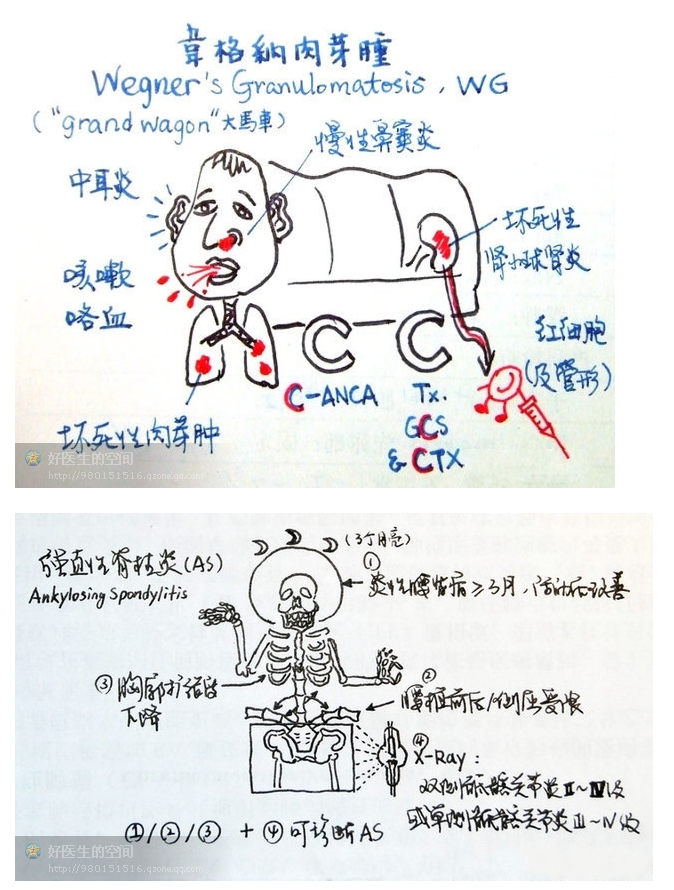 韋格納肉芽腫
Wegner's Granulomatosis, WG
("grand wagon"大馬車)
慢性鼻竇炎
中耳炎
坏死性
肾小球肾炎
咳嗽
咯血
红细胞
(及管形)
C-ANCA
Tx.
GCS
& CTX
坏死性肉芽肿
好医生的空间
http://980151516.qzone.qq.com
强直性脊柱炎(AS)
Ankylosing Spondylitis
(3个月亮)
① 炎性腰背痛≥3月,活动后改善
③ 胸廓扩活度
下降
② 腰椎前后/侧屈受限
④ X-Ray:
双侧骶髂关节炎Ⅱ~Ⅳ级
或单侧骶髂关节炎Ⅲ~Ⅳ级
①/②/③ + ④可诊断AS
好医生的空间
http://980151516.qzone.qq.com